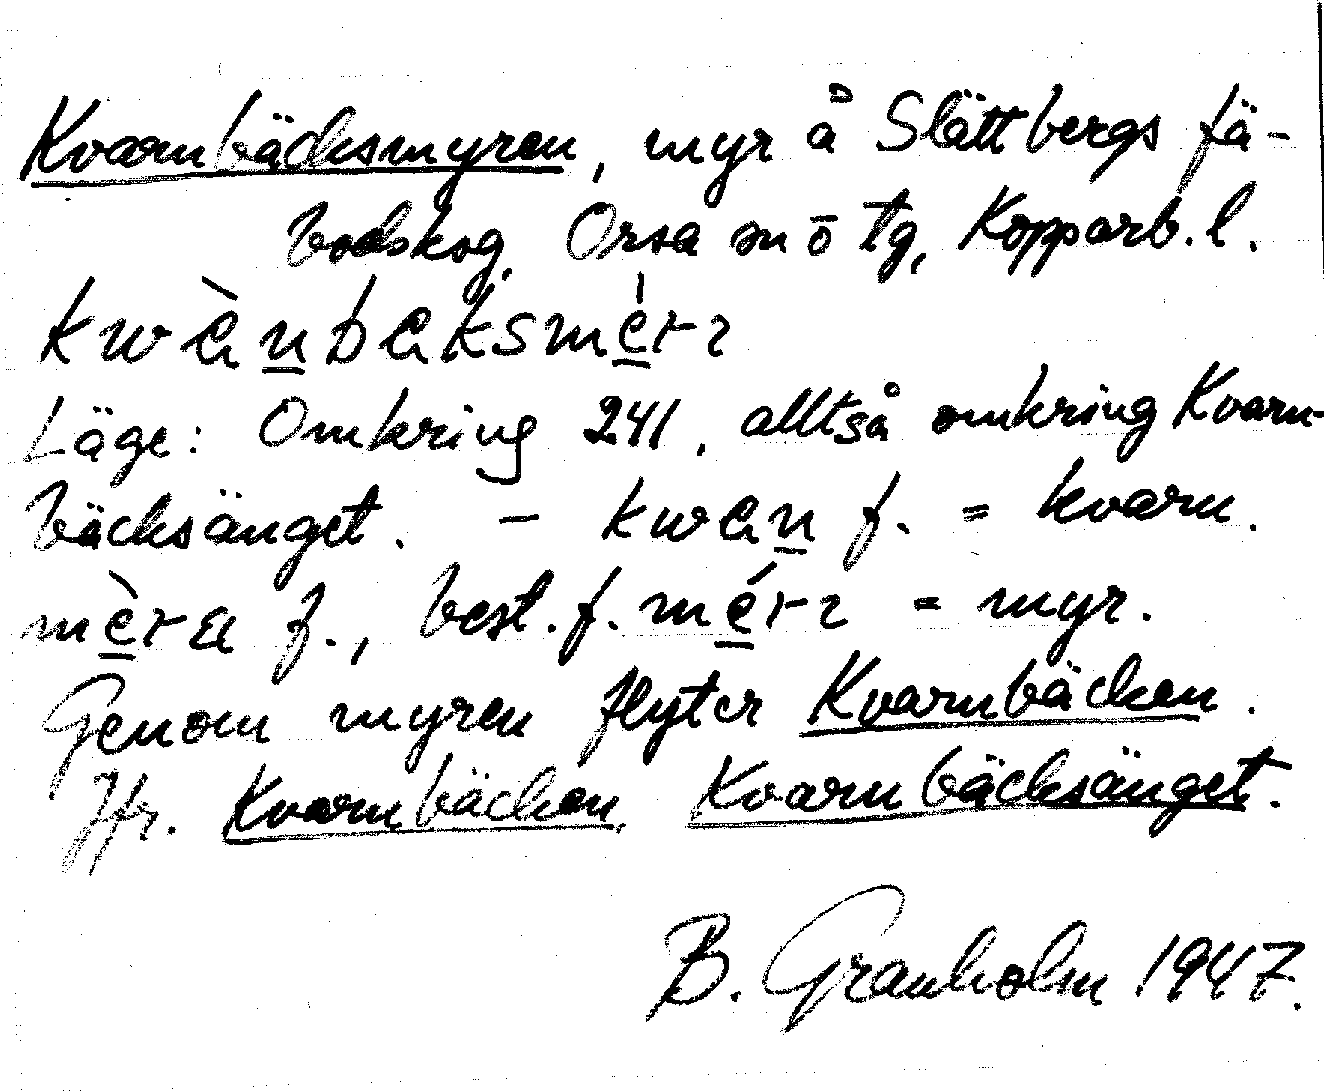 Kvarnbäcksmyren, myr å Slättbergs fä-
bodskog, Orsa sn ö tg, Kopparb. l.
kwànbaksmérɪ
Läge: Omkring 241, alltså omkring Kvarn-
bäcksänget. - kwan f. = kvarn.
mèra f., best. f. mérɪ = myr.
Genom myren flyter Kvarnbäcken.
Jfr. Kvarnbäcken, Kvarnbäcksänget.
B. Granholm 1947.